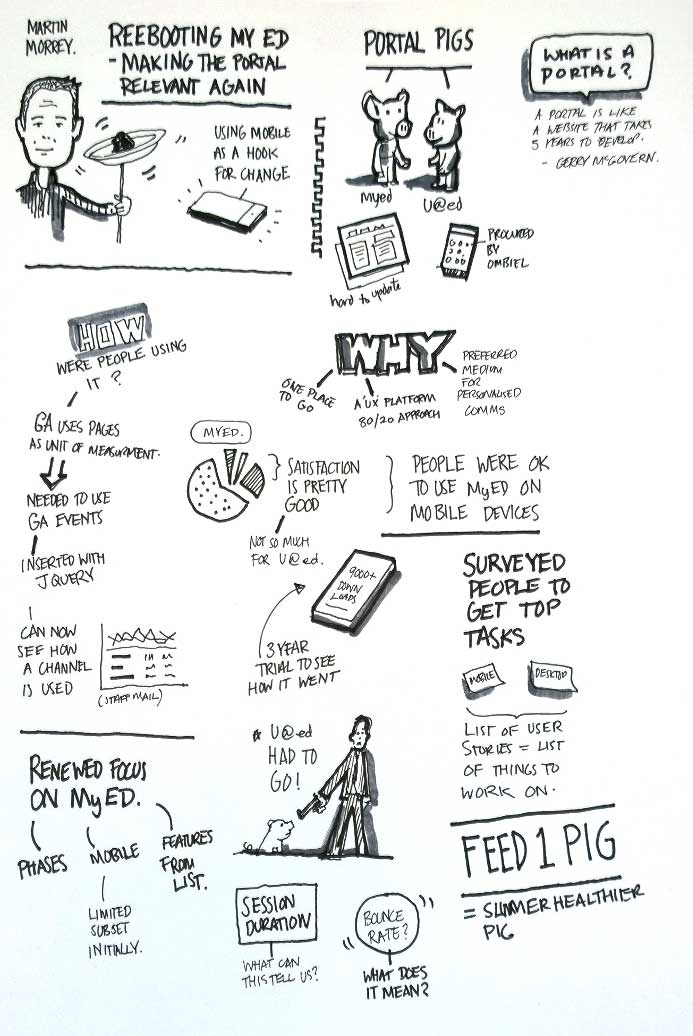 MARTIN
MORREY.
REEBOOTING MY ED
- MAKING THE PORTAL
RELEVANT AGAIN
USING MOBILE
AS A HOOK
FOR CHANGE
PORTAL PIGS
Myed
U@ed
hard to update
PRODUCED
BY
OMBIEL
WHAT IS A
PORTAL?
A PORTAL IS LIKE
A WEBSITE THAT TAKES
5 YEARS TO DEVELOP.
- GERRY McGOVERN.
HOW
WERE PEOPLE USING
IT?
GA USES PAGES
AS UNIT OF MEASURMENT.
NEEDED TO USE
GA EVENTS
INSERTED WITH
JQUERY
CAN NOW
SEE HOW
A CHANNEL
IS USED
(STAFF MAIL)
WHY
ONE PLACE
TO GO
A 'UX' PLATFORM
80/20 APPROACH
PREFERRED
MEDIUM
FOR
PERSONALISED
COMMS
MYED.
SATISFACTION
IS PRETTY
GOOD
NOT SO MUCH
FOR U@ed.
PEOPLE WERE OK
TO USE MyED ON
MOBILE DEVICES
9000+
DOWN
LOADS
3 YEAR
TRIAL TO SEE
HOW IT WENT
SURVEYED
PEOPLE TO
GET TOP
TASKS
MOBILE
DESKTOP
LIST OF USER
STORIES = LIST
OF THINGS TO
WORK ON.
RENEWED FOCUS
ON MyED.
PHASES
MOBILE
FEATURES
FROM
LIST.
LIMITED
SUBSET
INITIALLY.
* U@ed
HAD TO
GO!
SESSION
DURATION
WHAT CAN
THIS TELL US?
BOUNCE
RATE?
WHAT DOES
IT MEAN?
FEED 1 PIG
= SLIMMER HEALTHIER
PIG